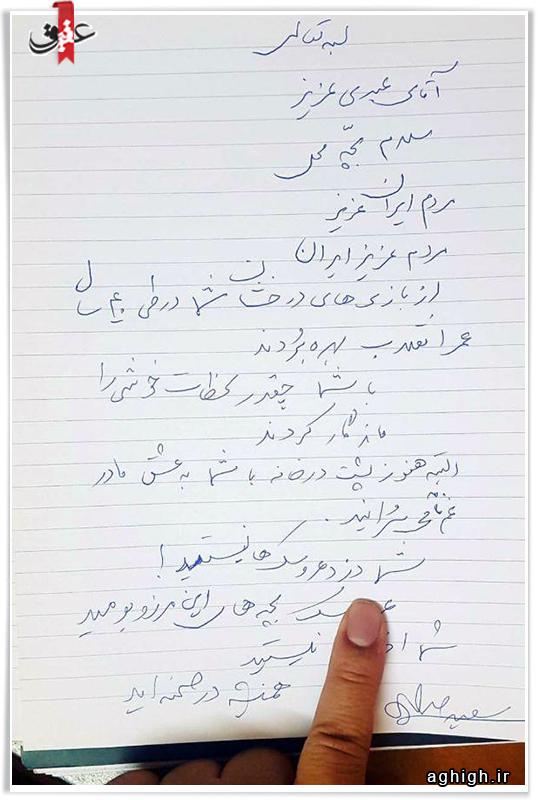 عقیق
بسمه تعالی
آقای عبدی عزیز
سلام بچّه محل
مردم ایران عزیز
مردم عزیز ایران
از بازی های درخشان شما در طی ۴۰ سال
عمر انقلاب بهره بردند
با شما چقدر لحظات خوشی را
ماندگار کردند
البته هنوز پشت در خانه با شما به عشق مادر
شما دزد عروسک ها نیستید!
بچه های این مرز و بومید
شما نیستید
همیشه در صحنه اید
سعید
aghigh.ir